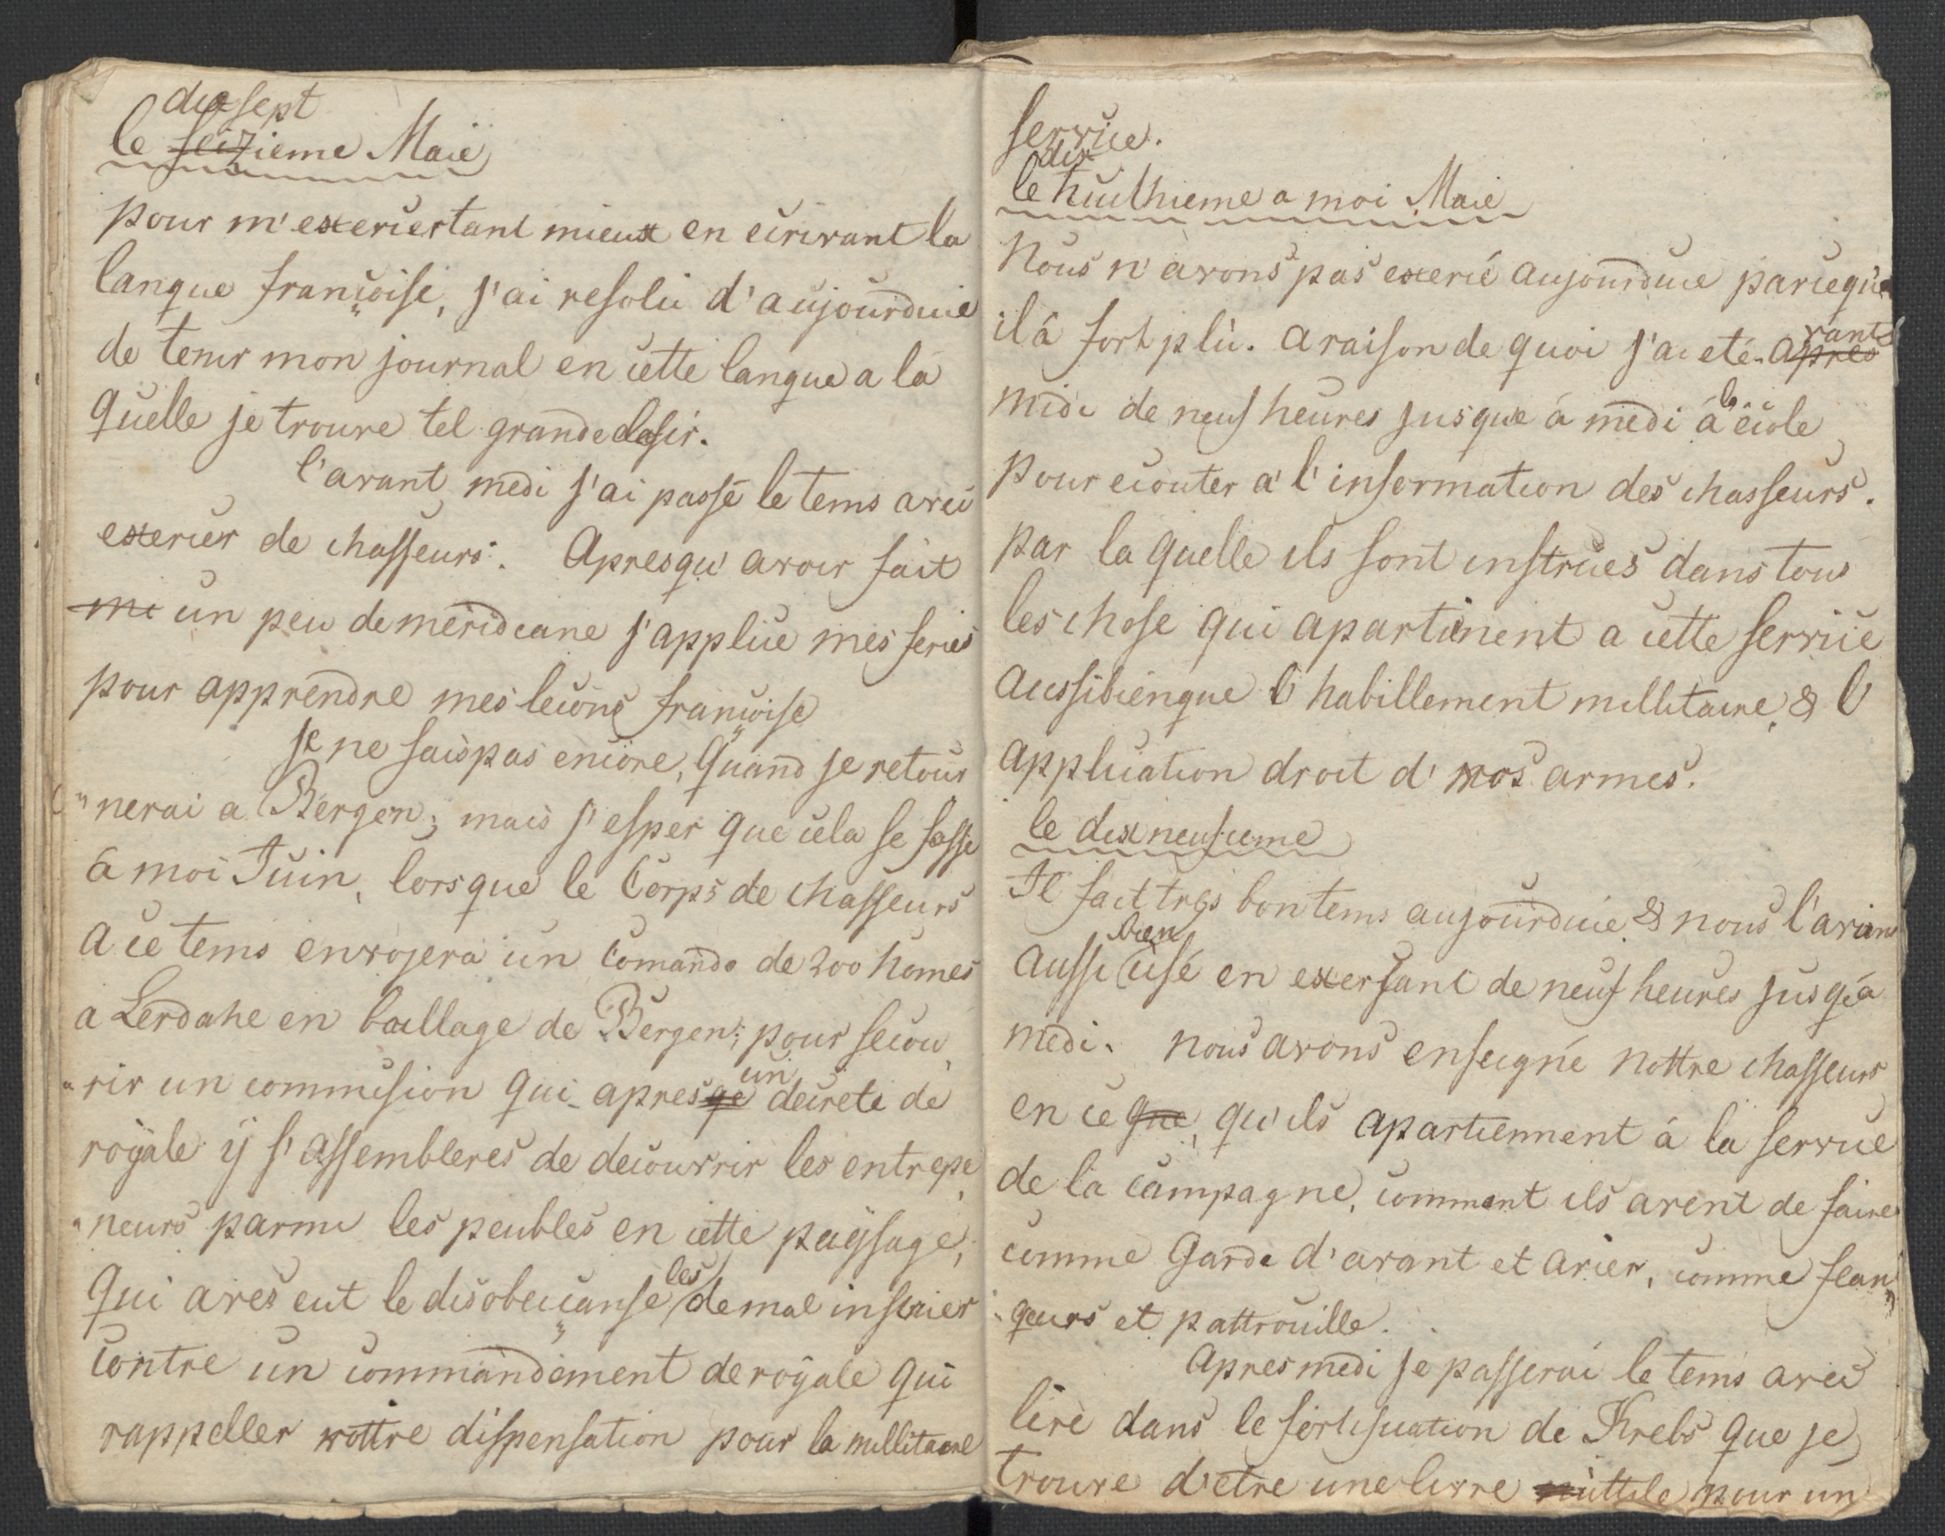 dix sept
le seizieme Maie
pour m'exercer tant mieux en ecrivant la
langue françoise, j'ai resolu d'aujourduie
de tenir mon journal en cette langue a la
quelle je trouve tel grande desir.
l'avant medi j'ai passé le tems avec
exercer de chasseurs. Apresqu' avoir fait
me un peu de meridiane j'applice mes series
pour apprendre mes leçons françoise
je ne sais pas encore, quand je retour
" nerai a Bergen; mais j'esper que cela se fasse
á moi Juin, lorsque le Corps de chasseurs
a ce tems envojera un Comando de 200 homes
a Lerdahe en baillage de Bergen; pour secou
" rir un commision qui apres qe un decrete de
roÿale ÿ s'assembleres de decouvrir les entrepe
" neurs parmi les peubles en cette paÿsage,
qui aves eut le disobeiçanse les de mal inscrier
contre un commandement de roÿale qui
rappeller vottre dispensation pour la millitaire
service.
dix
le huithieme a moi Maie
Nous n'avons pas exercé aujourduie parceque
il á fort plu. a raison de quoi j'ai eté apres vants
midi de neuf heures jusque á medi á l' ecole
pour ecouter a' l'information des chasseurs.
par la quelle ils sont instrues dans tous
les chose qui apartinent a cette service
aussibienque l'habillement millitaire, & l'
application droit d' nos armes.
le dixneufieme
Il fait trés bon tems aujourduie & nous l'avions
aussi bien usé en exersant de neuf heures jusqéa
medi. nous avons enseigné nottre chasseurs
en ce que, qu'ils apartiennent á la service
de la campagne, comment ils avent de faire
comme Garde d'avant et arier, comme flan
" qeurs et pattrouille.
Apres medi je passerai le tems avec
lire dans le fortification de Krebs que je
trouve d'etre une livre nuttile pour un